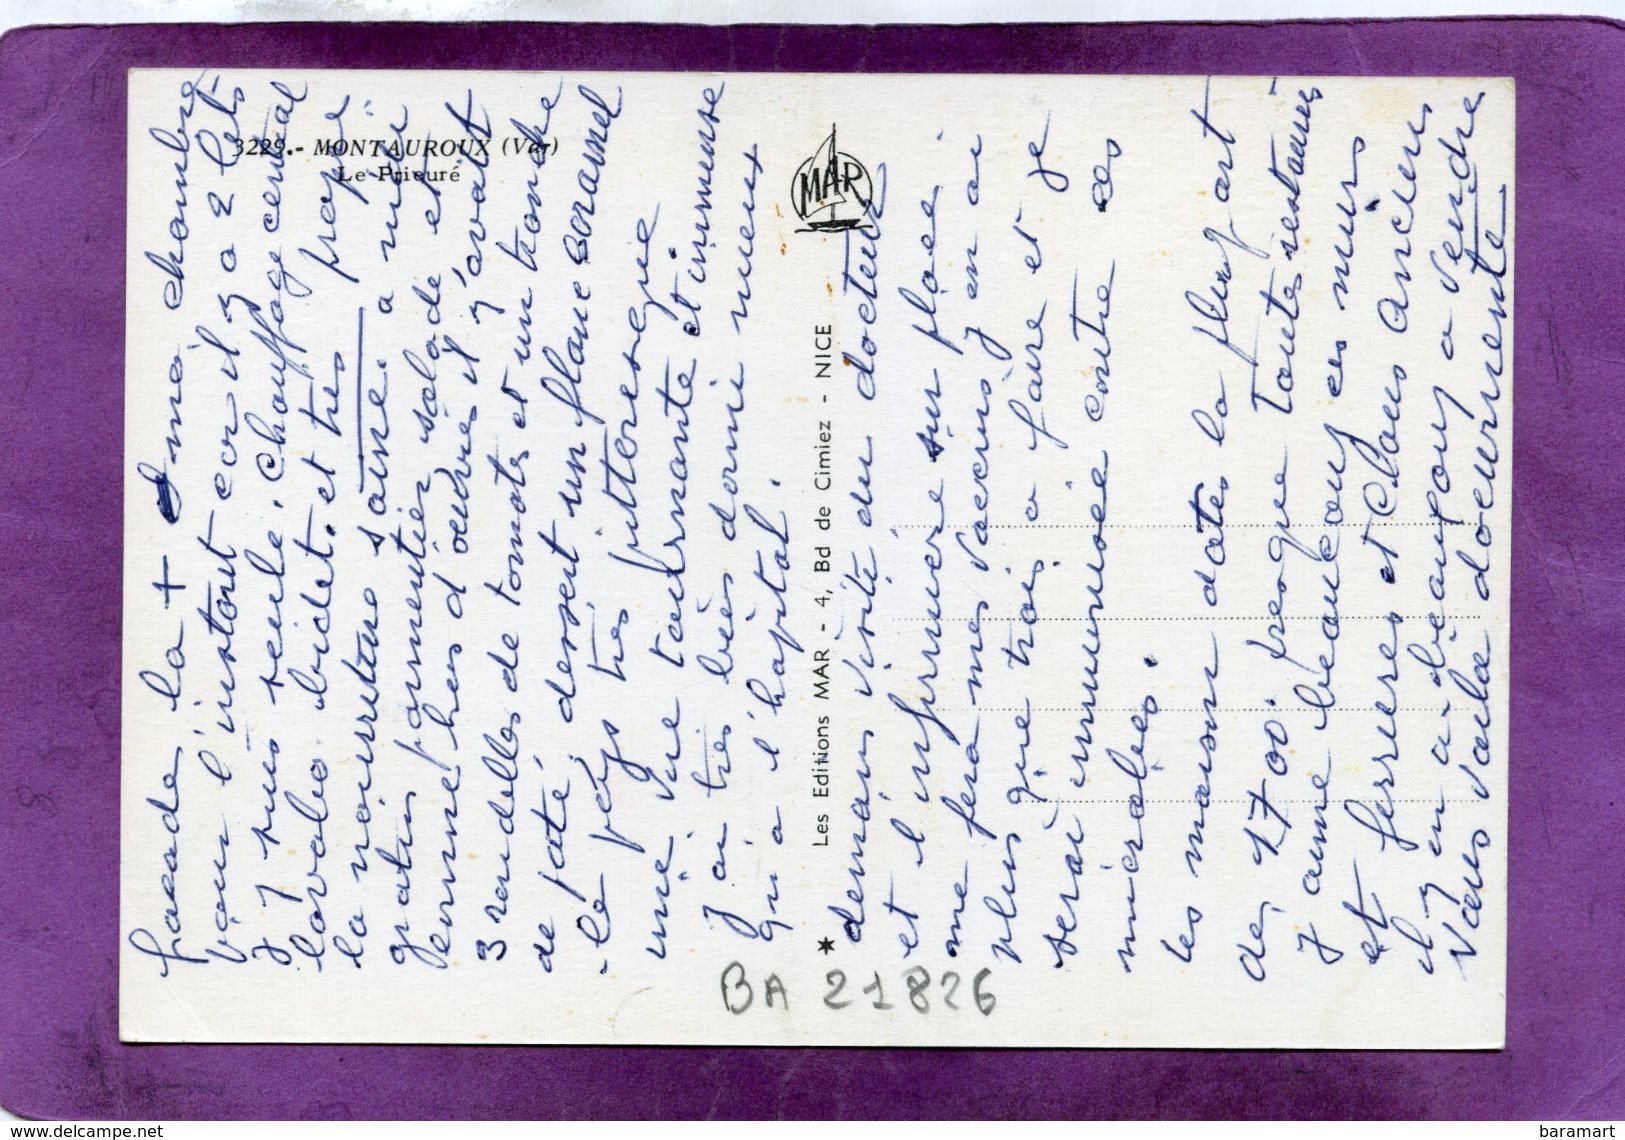 3229.- MONTAUROUX (Var)
Le Prieuré
MAR
Les Editions MAR - 4, Bd de Cimiez - NICE
façade la + ma chambre
pour l'instant car il y a 2 lits
j y suis seule. Chauffage central
lavabo bidet. et très propre
la nourriture saine. a midi
gratin parmentier salade et
pomme hors d'oeuvres il y avait
3 rondelles de tomate et un tranche
de paté, dessert un flanc caramel
- le pays très pittoresque
une vue tournante et immense
J ai très bien dormi mieux
qu a l'hapital.
demain visite du docteur
et l infirmière sur place
me fera mes vaccins j en ai
plus que trois a faire et je
serai immunisée contre ces
microbes.
les maison datés la plus part
de 1700. presque toutes restaurées
J aime beaucoup ces murs
et ferrures et Clous Anciens
il y en a beaucoup a vendre
Vaus documente
BA 21826
www.delcampe.net
baramart